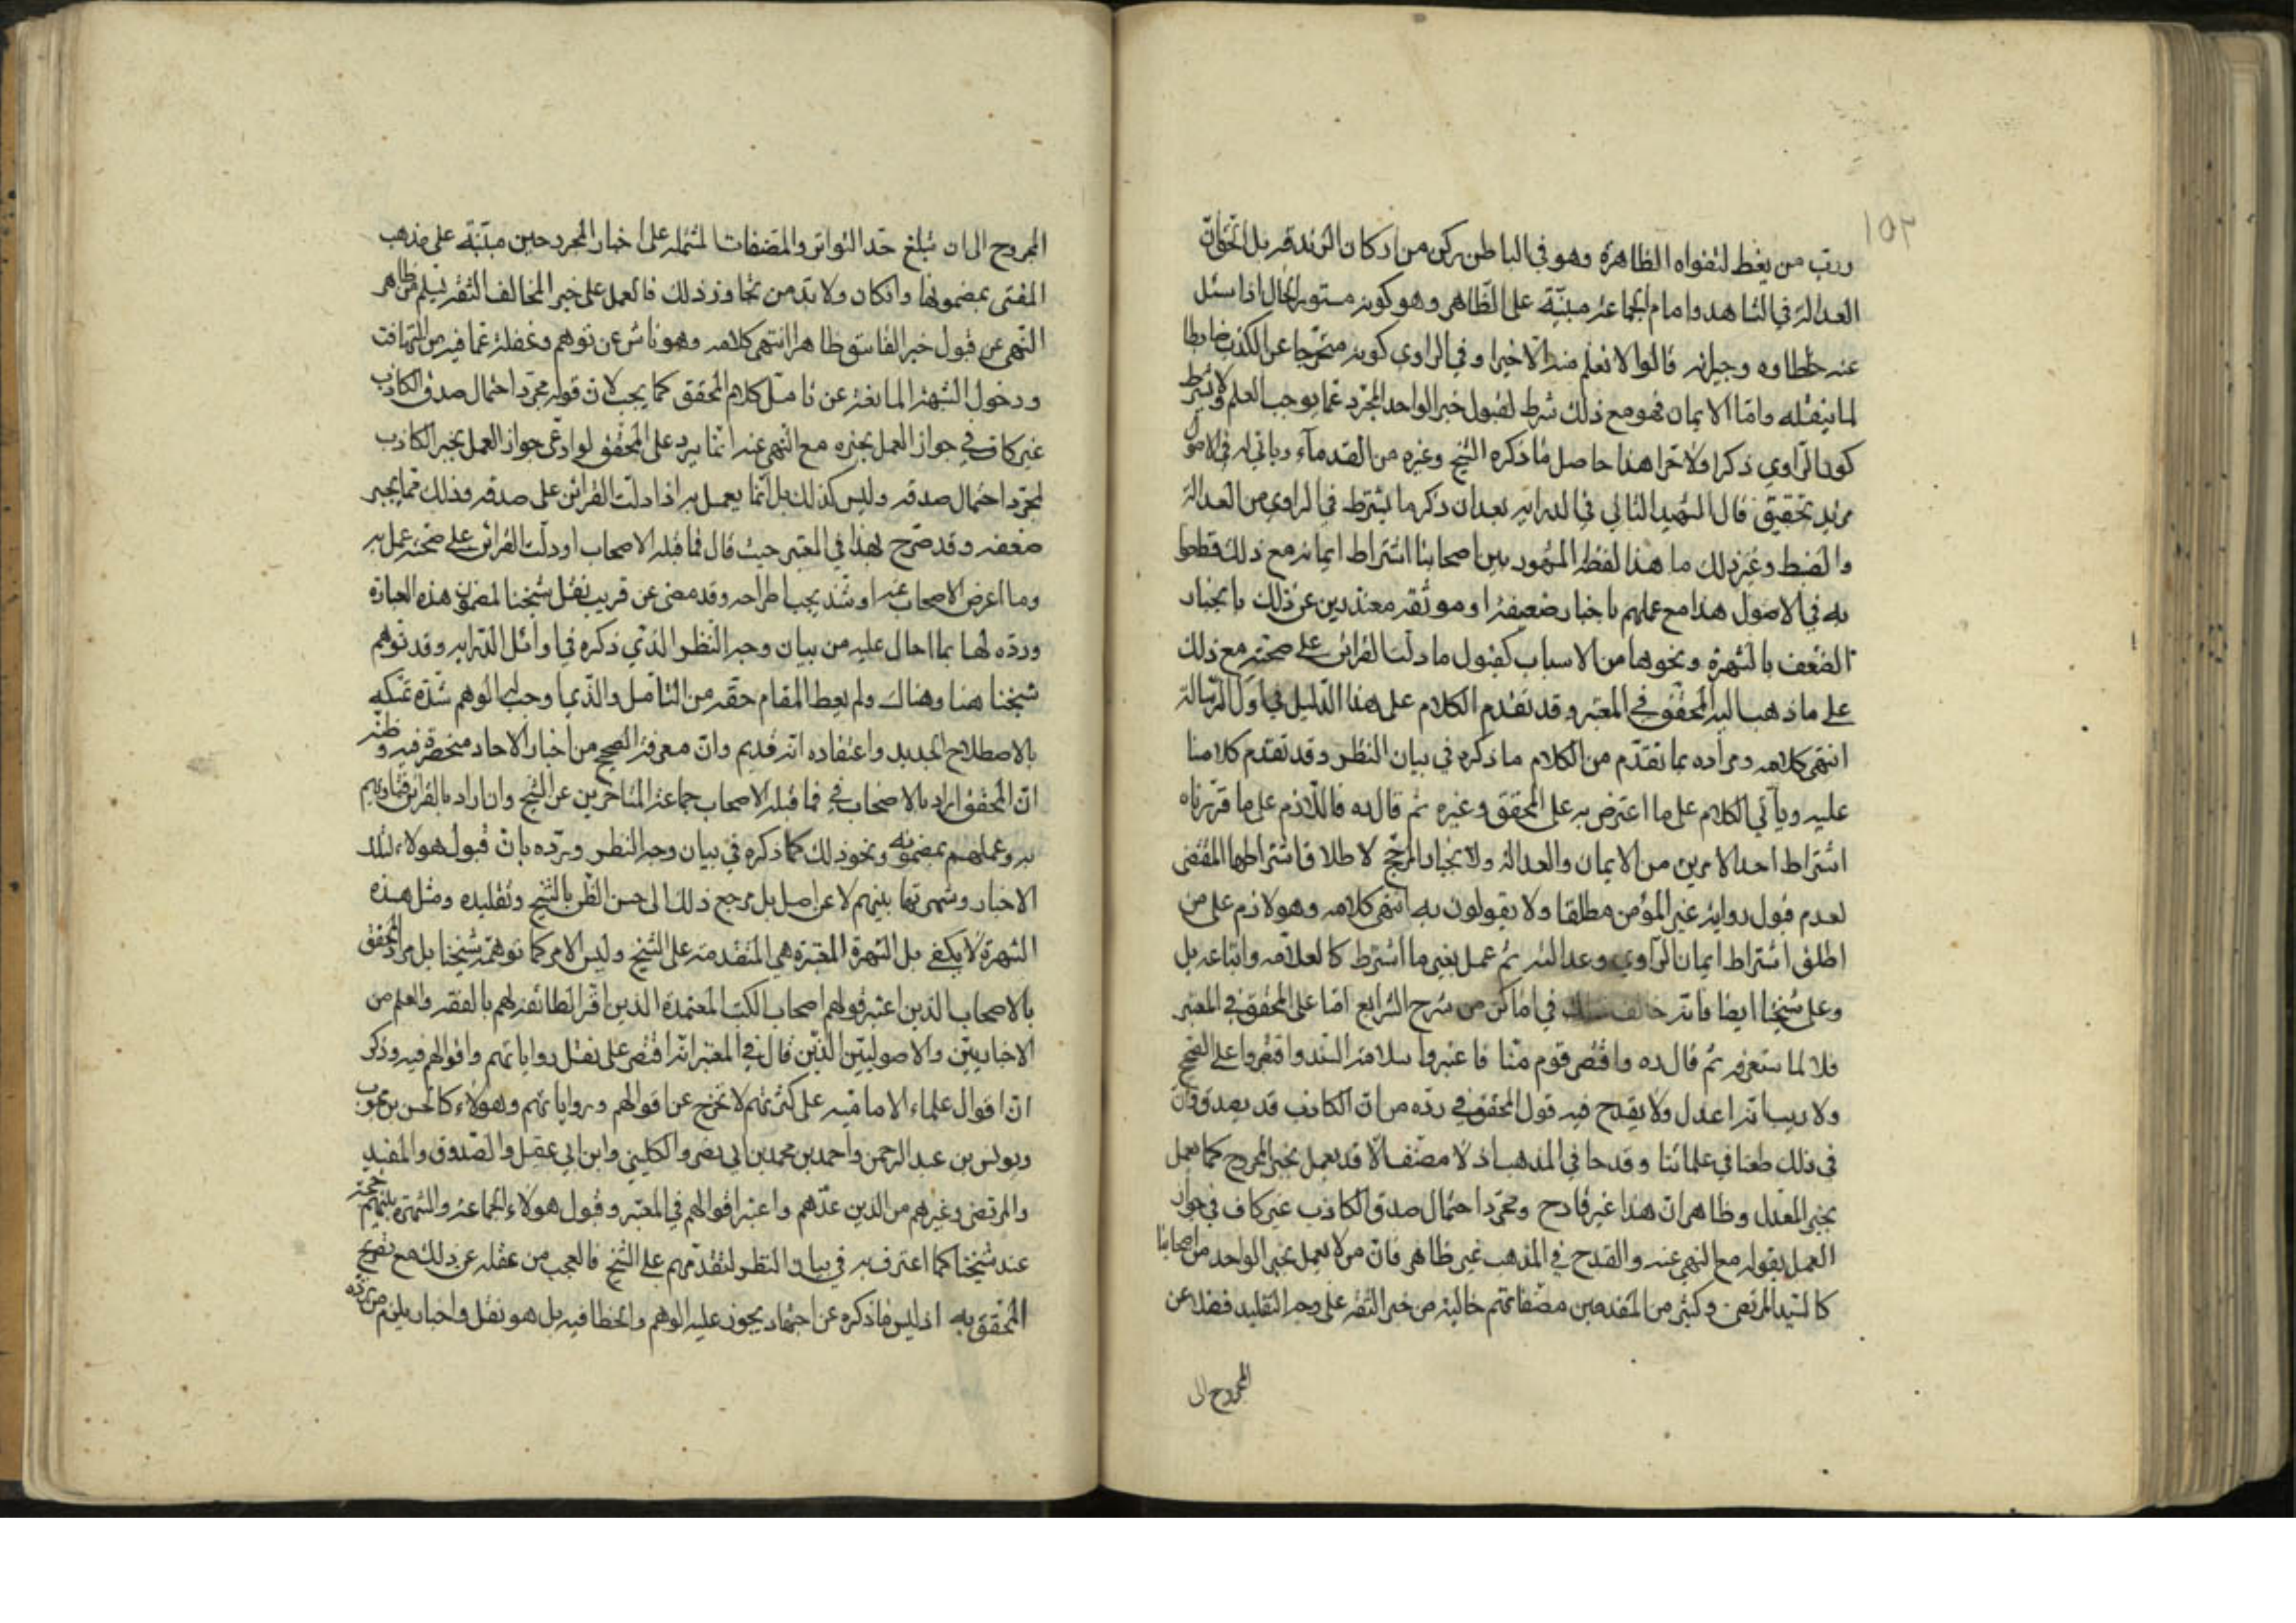 ١٥٢
ورب من يغط لتقواه الظاهرة وهو في الباطن ركن من اركان الزندقه بل الحق ان
العدالة في الشاهد وامام الجماعة مبنيّة على الظّاهر وهو كونه مستور الحال اذا سئل
عنه خلطاوه وجيرانه قالوا لا نعلم منه الا خيرا وفي الراوي كونه متحرّجا عن الكذب ضابطا
لما ينقله وامّا الايمان فهو مع ذلك شرط لقبول خبر الواحد المجرّد عمّا يوجب العلم ولا يشترط
كون الرّاوي ذكرا ولا حرا هذا حاصل ما ذكره الشيخ وغيره من القدماء وياتي له في الاصول
مزيد تحقيق قال الشهيد الثاني في الدرايه بعد ان ذكر ما يشترط في الراوي من العدالة
والضبط وغير ذلك ما هذا لفظه المشهور بين اصحابنا اشتراط ايمانه مع ذلك قطعوا
به في الاصول هذا مع عملهم باخبار ضعيفة او موثقه معتذرين عن ذلك بانجبار
الضعف بالشهرة ونحوها من الاسباب كقبول ما دلت القرائن على صحته مع ذلك
على ما ذهب اليه المحقق في المعتبر وقد تقدم الكلام على هذا الدّليل في اول الرّسالة
انتهى كلامه ومراده بما تقدّم من الكلام ما ذكره في بيان النظر وقد تقدم كلامنا
عليه وياتي الكلام على ما اعترض به على المحقق وغيره ثم قال ده فاللازم على ما قرّرناه
اشتراط احد الامرين من الايمان والعدالة ولانجبار المرجّح لا طلاق اشتراطهما المقتضى
لعدم قبول رواية غير المؤمن مطلقا ولا يقولون به انتهى كلامه وهو لازم على من
اطلق اشتراط ايمان الرّاوي وعدالته ثم عمل بغير ما اشترط كالعلاّمه واتباعه بل
وعلى شيخنا ايضا فانه خالف ذلك في اماكن من شرح الشرايع امّا على المحقق في المعتبر
فلا لما ستعرفه ثم قال ده واقتصر قوم منّا فاعتبروا سلامة السّند واقتصروا على الصّحيح
ولا ريب انه اعدل ولا يقدح فيه قول المحقق في ردّه من ان الكاذب قد يصدق وان
في ذلك طعنا في علمائنا وقدحا في المذهب اذ لا مصنّف الّا قد يعمل بخبر المجروح كما يعمل
بخبر المعدل وظاهر ان هذا غير قادح ومجرّد احتمال صدق الكاذب غير كاف في جواز
العمل بقوله مع النهي عنه والقدح في المذهب غير ظاهر فان من لا يعمل بخبر الواحد من اصحابنا
كالسّيد المرتضى وكثير من المتقدمين مصنّفاتهم خالية من خبر الثقة على وجه التقليد فضلا عن
المجروح الى
المجروح الى ان تبلغ حدّ التواتر والمصنفات المشتملة على اخبار المجروحين مبنيّة على مذهب
المفتي بمضمونها وان كان ولا بدّ من تجاوز ذلك فالعمل على خبر المخالف الثقة ليسلم من ظاهر
النهي عن قبول خبر الفاسق ظاهرا انتهى كلامه وهو ناش عن توهم وغفلة عمّا فيه من التهافت
ودخول الشبهة المانعة عن تامّل كلام المحقق كما يجب لان قوله مجرّد احتمال صدق الكاذب
غير كاف في جواز العمل بخبره مع النهي عنه انّما يرد على المحقق لو ادعى جواز العمل بخبر الكاذب
لمجرّد احتمال صدقه وليس كذلك بل انّما يعمل به اذا دلت القرائن على صدقه وذلك ممّا يجبر
ضعفه وقد صرّح بهذا في المعتبر حيث قال فما قبله الاصحاب او دلّت القرائن على صحته عمل به
وما اعرض الاصحاب عنه او شذ يجب اطراحه وقد مضى عن قريب نقل شيخنا لمضمون هذه العبارة
وردّه لها بما احال عليه من بيان وجه النّظر الذي ذكره في اوائل الدرايه وقد توهم
شيخنا هنا وهناك ولم يعط المقام حقّه من التّأمّل والذي اوجب له الوهم شدّة تمسّكه
بالاصطلاح الجديد واعتقاده انه قديم وان معرفة الصحيح من اخبار الاحاد منحصرة فيه وظنّه
انّ المحقق اراد بالاصحاب في فما قبله الاصحاب جماعة المتاخرين عن الشيخ وان اراد بالقرائن فتاويهم
به وعملهم بمضمونه ونحو ذلك كما ذكره في بيان وجه النّظر وردّه بان قبول هولاء لتلك
الاخبار وشهرتها بينهم لا عن اصل بل مرجع ذلك الى حسن الظّن بالشيخ وتقليده ومثل هذه
الشهرة لا يكفي بل الشهرة المعتبرة هي المتقدمة على الشيخ وليس الامر كما توهمه شيخنا بل مراد المحقق
بالاصحاب الذين اعتبر قولهم اصحاب الكتب المعتمدة الذين اقر الطائفة لهم بالفقه والعلم من
الاخباريّين والاصوليّين الذين قال في المعتبر انه اقتصر على نقل رواياتهم واقوالهم فيه وذكر
ان اقوال علماء الاماميّه على كثرتهم لا تخرج عن اقوالهم ورواياتهم وهولاء كالحسن بن محبوب
ويونس بن عبد الرحمن واحمد بن محمد بن ابي نصر والكليني وابن ابي عقيل والصدوق والمفيد
والمرتضى وغيرهم من الذين عدّهم واعتبر اقوالهم في المعتبر وقبول هولاء الجماعة والشهرة بينهم حجّة
عند شيخنا كما اعترف به في بيان النظر لتقدّمهم على الشيخ فالعجب من غفلته عن ذلك مع تصريح
المحقق به اذ ليس ما ذكره عن اجتهاد يجوز عليه الوهم والخطا فيه بل هو نقل واخبار يلزم من ردّه